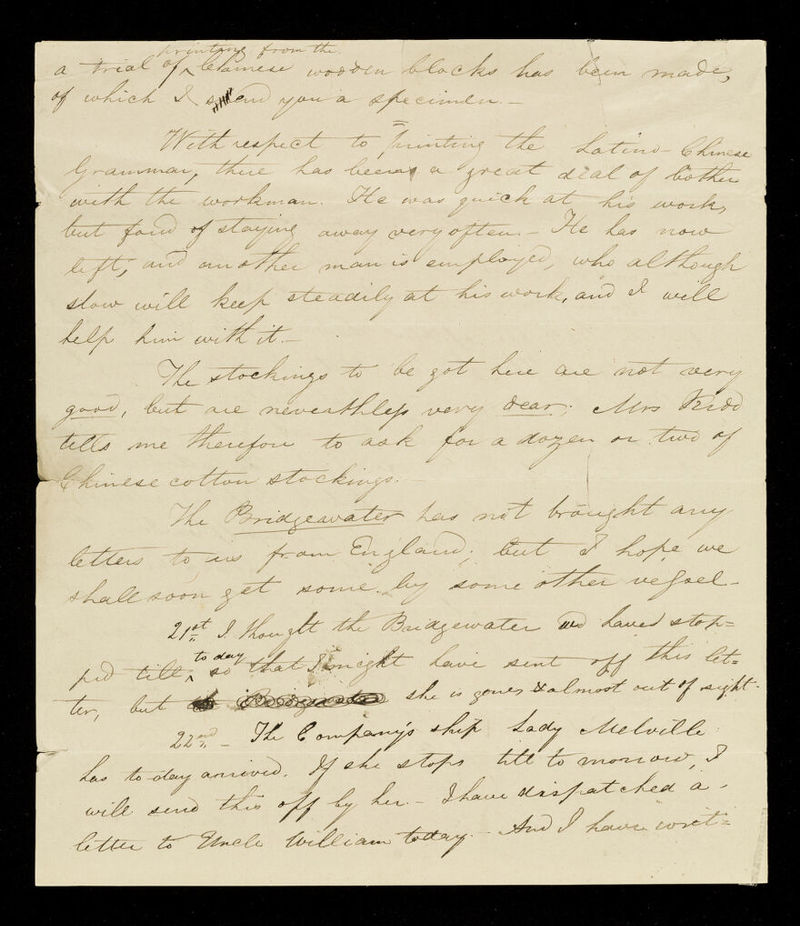 printing from the
a trial of ^ Chinese wooden blocks has been made,
of which I send you a specimen. —
With respect to printing the Latino-Chinese
Grammar, there has been a great deal of bother
with the workman. He was quick at his work,
but fond of staying away very often. — He has now
left; and another man is employed, who although
slow will keep steadily at his work, and I will
help him with it. —
The stockings to be got here are not very
good, but are nevertheless very dear. Mrs Kidd
tells me therefore to ask for a dozen or two of
Chinese cotton stockings.
The Bridgewater has not brought any
letters to us from England; but I hope we
shall soon get some by some other vessel —
21st I thought the Bridgewater wd have stop=
to day
ped till ^ so that I might have sent off this let=
ter, but she is gone & almost out of sight.
22nd — The Company's ship Lady Melville
has to-day arrived. If she stops till to morrow, I
will send this off by her. — I have dispatched a
letter to Uncle William today. — And I have writ=